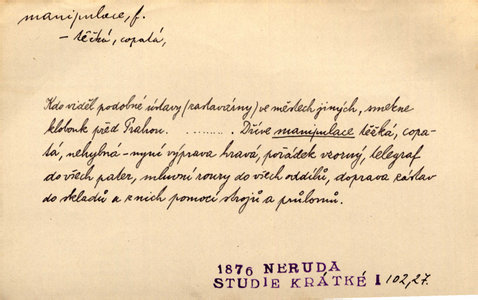 manipulace, f.
– těžká, copatá,
Kdo viděl podobné ústavy (zastavárny) ve městech jiných, smekne
klobouk před Prahou. .......... Dříve manipulace těžká, copa-
tá, nehybná – nyní výprava hravá, pořádek vzorný, telegraf
do všech pater, mluvní roury do všech oddílů, doprava zástav
do skladů a z nich pomocí strojů a průlomů.
1876 NERUDA
STUDIE KRÁTKÉ I 102,27.